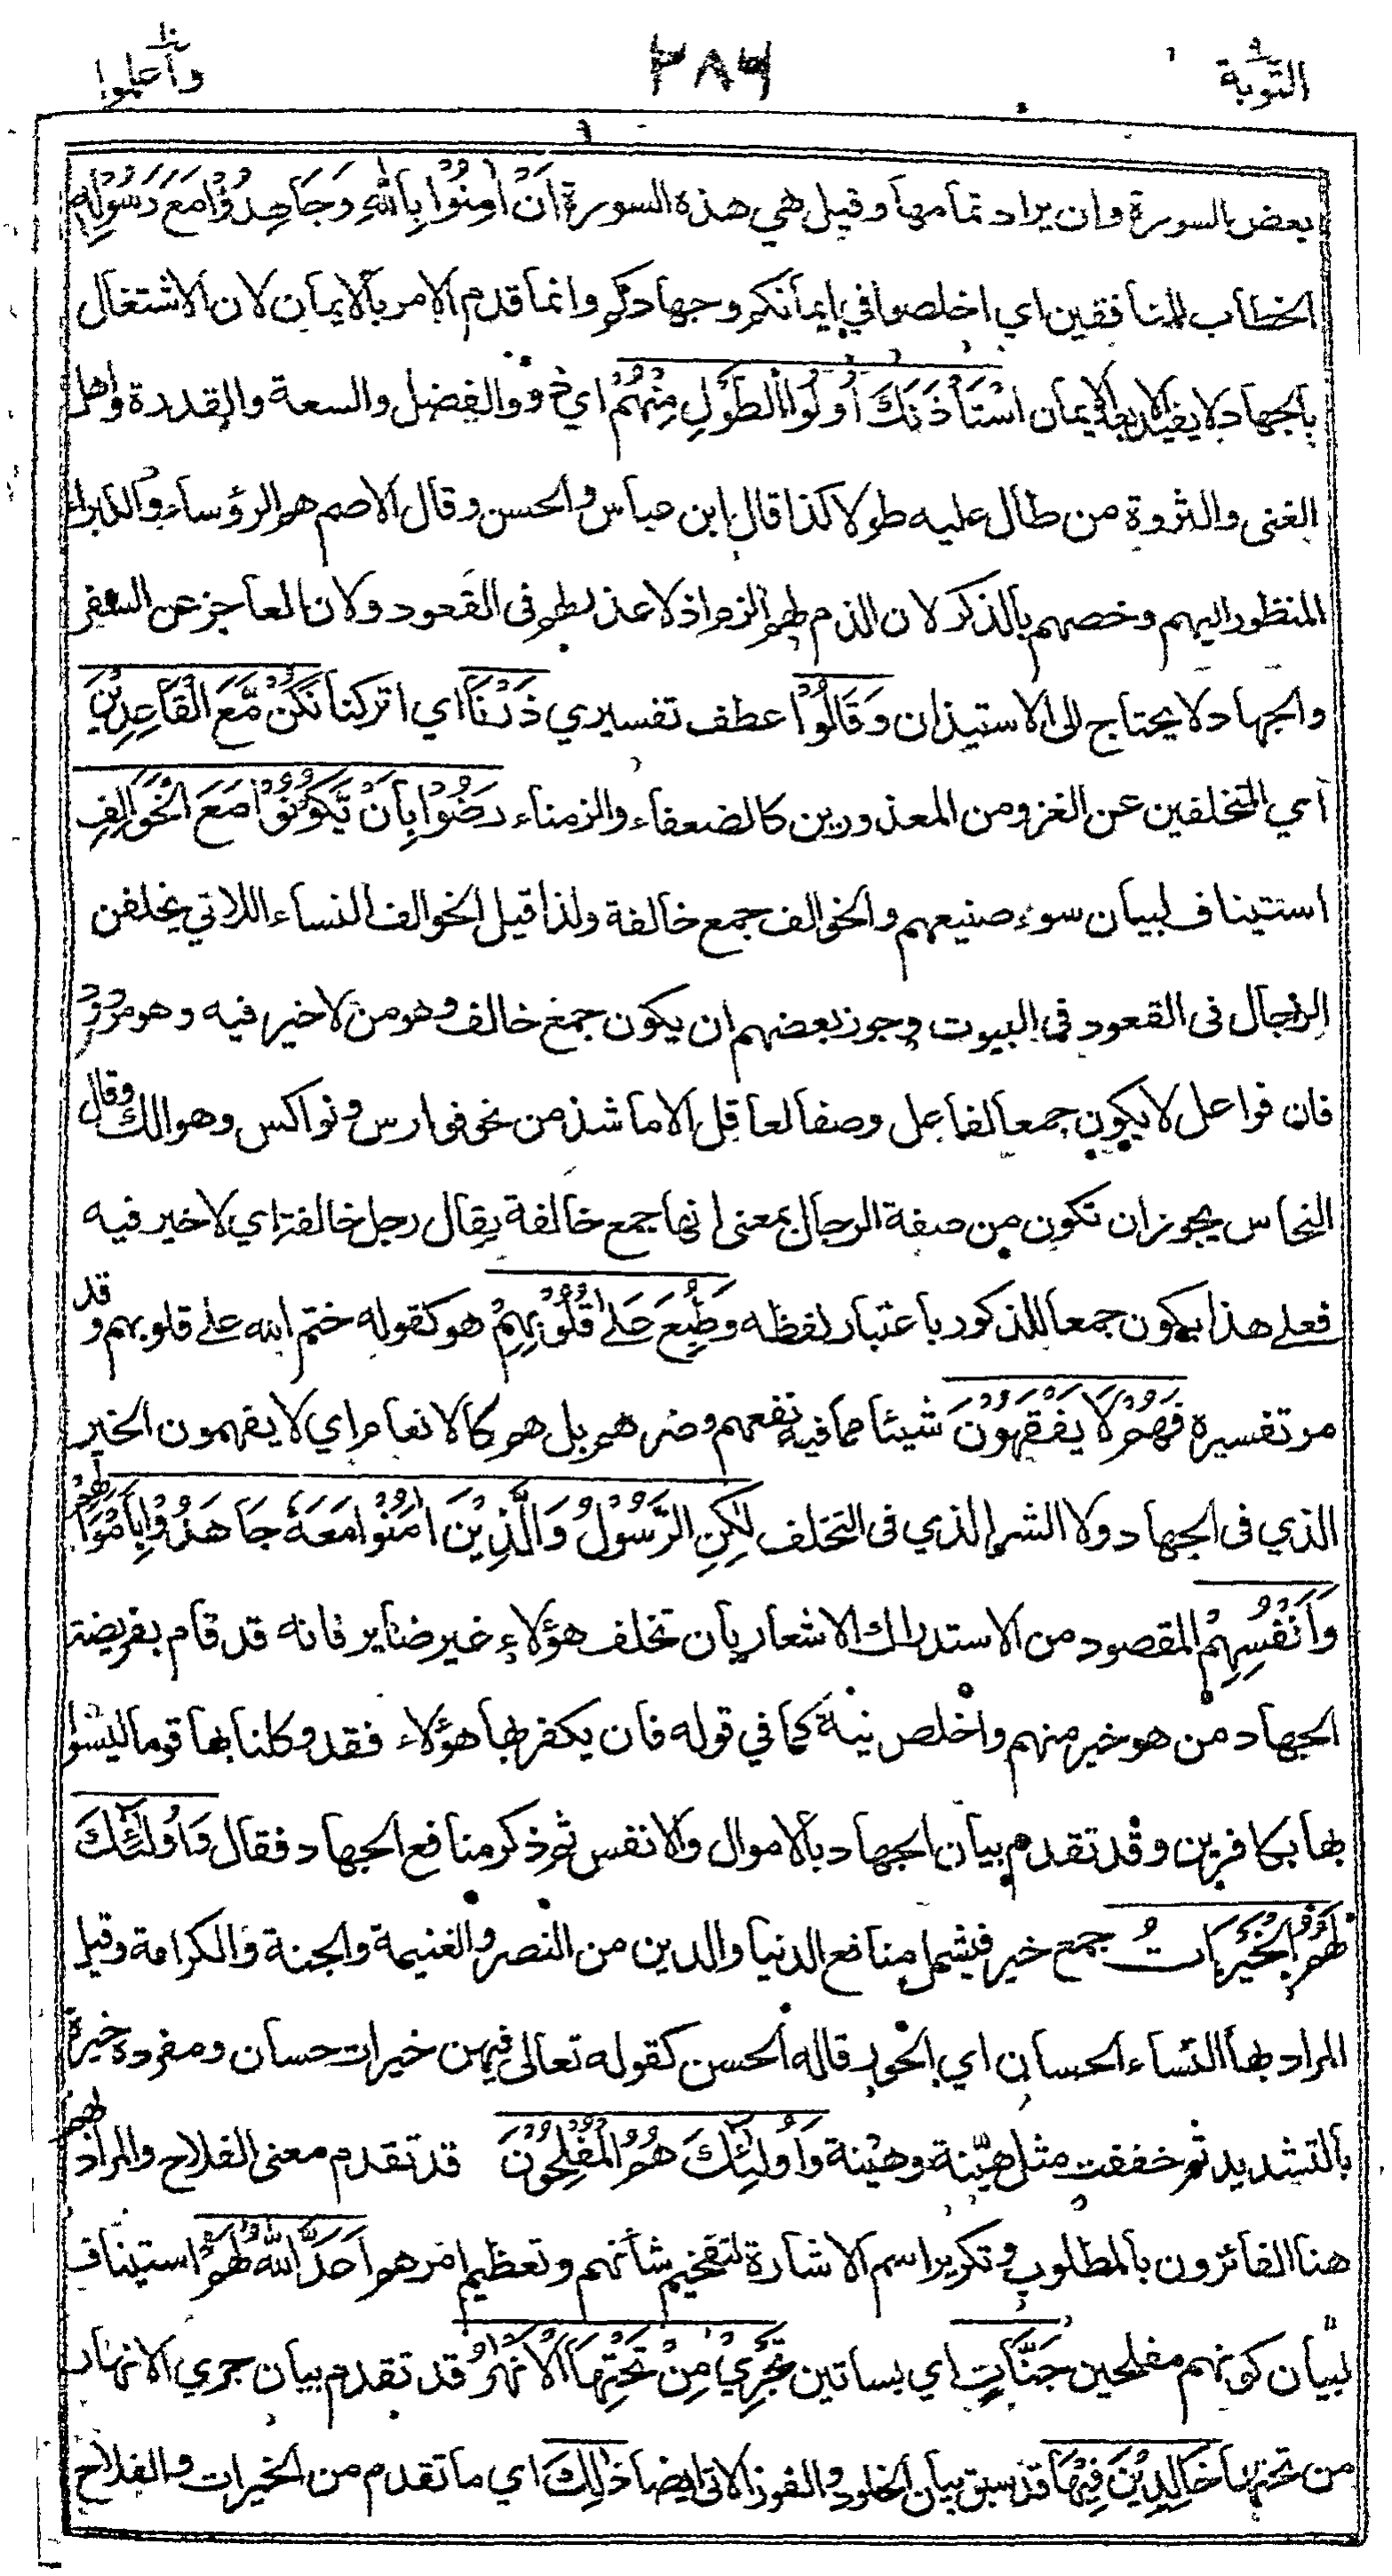 التوبة ٩
٣٨٦
واعلموا ١٠
بعض السورة وان يراد تمامها وقيل هي هذه السورة اَنْ اٰمِنُوْا بِاللّٰهِ وَجَاهِدُوْا مَعَ رَسُوْلِهِ
الخطاب للمنافقين اي اخلصوا في ايمانكم وجهادكم وانما قدم الامر بالايمان لان الاشتغال
بالجهاد لا يفيد الا بعد الايمان اسْتَأْذَنَكَ اُولُوا الطَّوْلِ مِنْهُمْ اي ذوو الفضل والسعة والقدرة واهل
الغنى والثروة من طال عليه طولا كذا قال ابن عباس والحسن وقال الاصم هم الرؤساء والكبراء
المنظور اليهم وخصهم بالذكر لان الذم لهم الزم اذ لا عذر لهم فى القعود ولان العاجز عن السفر
والجهاد لا يحتاج الى الاستيذان وَقَالُوْا عطف تفسيري ذَرْنَا اي اتركنا نَكُنْ مَّعَ الْقَاعِدِيْنَ
اي المتخلفين عن الغزو من المعذورين كالضعفاء والزمناء رَضُوْا بِاَنْ يَّكُوْنُوْا مَعَ الْخَوَالِفِ
استيناف لبيان سوء صنيعهم والخوالف جمع خالفة ولذا قيل الخوالف النساء اللاتي يخلفن
الرجال فى القعود في البيوت وجوز بعضهم ان يكون جمع خالف وهو من لا خير فيه وهو مردود
فان فواعل لا يكون جمعا لفاعل وصفا لعاقل الا ما شذ من نحو فوارس ونواكس وهوالك وقال
النحاس يجوز ان تكون من صفة الرجال بمعنى انها جمع خالفة يقال رجل خالفة اي لا خير فيه
فعلى هذا يكون جمعا للذكور باعتبار لفظه وَطُبِعَ عَلٰى قُلُوْبِهِمْ هو كقوله ختم الله على قلوبهم وقد
مر تفسيره فَهُمْ لَا يَفْقَهُوْنَ شيئا مما فيه نفعهم وضرهم بل هم كالانعام اي لا يفهمون الخير
الذي فى الجهاد ولا الشر الذي فى التخلف لٰكِنِ الرَّسُوْلُ وَالَّذِيْنَ اٰمَنُوْا مَعَهٗ جَاهَدُوْا بِاَمْوَالِهِمْ
وَاَنْفُسِهِمْ المقصود من الاستدراك الاشعار بان تخلف هؤلاء غير ضاير فانه قد قام بفريضة
الجهاد من هو خير منهم واخلص نية كما في قوله فان يكفر بها هؤلاء فقد وكلنا بها قوما ليسوا
بها بكافرين وقد تقدم بيان الجهاد بالاموال والانفس ثم ذكر منافع الجهاد فقال وَاُولٰٓئِكَ
لَهُمُ الْخَيْرَاتُ جمع خير فيشمل منافع الدنيا والدين من النصر والغنيمة والجنة والكرامة وقيل
المراد بها النساء الحسان اي الحور قاله الحسن كقوله تعالى فيهن خيرات حسان ومفرده خيرة
بالتشديد ثم خففت مثل هيّنة وهينة وَاُولٰٓئِكَ هُمُ الْمُفْلِحُوْنَ قد تقدم معنى الفلاح والمراد بهم
هنا الفائزون بالمطلوب وتكرير اسم الاشارة لتفخيم شأنهم وتعظيم امرهم اَعَدَّ اللّٰهُ لَهُمْ استيناف
لبيان كونهم مفلحين جَنَّاتٍ اي بساتين تَجْرِيْ مِنْ تَحْتِهَا الْاَنْهٰرُ قد تقدم بيان جري الانهار
من تحتها خَالِدِيْنَ فِيْهَا قد سبق بيان الخلود والفوز الاتي ايضا ذٰلِكَ اي ما تقدم من الخيرات والفلاح